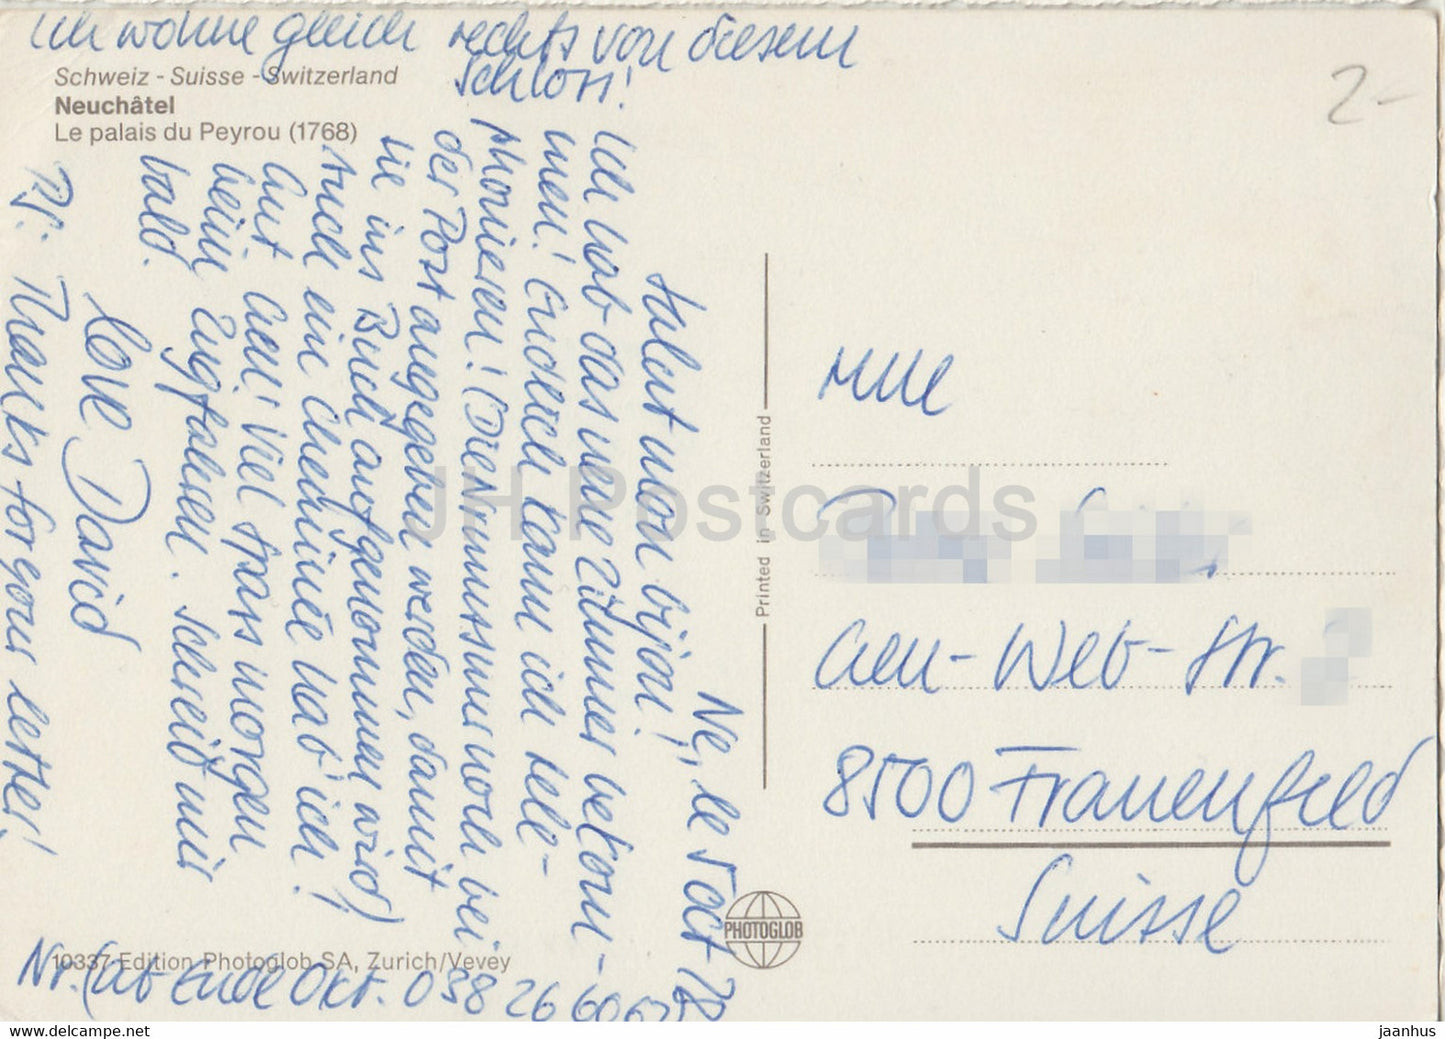 Ich wohne gleich rechts von diesem
Schloss!
Schweiz - Suisse - Switzerland
Neuchâtel
Le palais du Peyrou (1768)
2-
Ne, le 5 oct 78
Salut mon bijou!
Ich hab das neue Zimmer bekom-
men! Endlich kann ich tele-
phonieren! (Die Nummer muss noch bei
der Post angegeben werden, damit
sie ins Buch aufgenommen wird)
Auch ein Cheminée hab' ich!
Gut, gell! Viel Spass morgen
beim Zugfahren. Schreib mir
bald.
Love David
PS: Thanks for your letter!
Nr. (ab Ende Okt. 038 26 60
10337 Edition Photoglob SA, Zurich/Vevey
Printed in Switzerland
PHOTOGLOB
Mlle
-Web-Str.
8500 Frauenfeld
Suisse
JH Postcards
www.delcampe.net
jaanhus